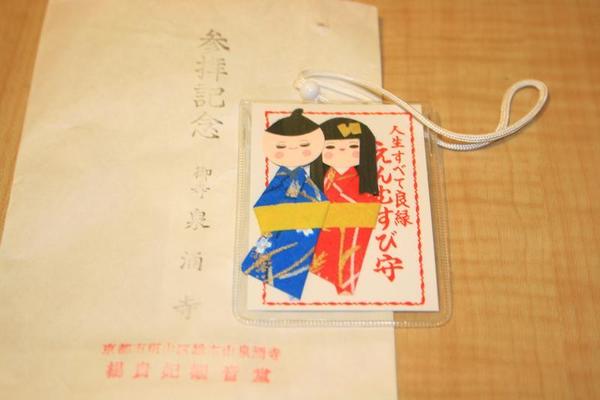 参拝記念
御寺
泉涌寺
京都市東山区泉涌寺山内町泉涌寺
楊貴妃観音堂
人生すべて良縁
えんむすび守